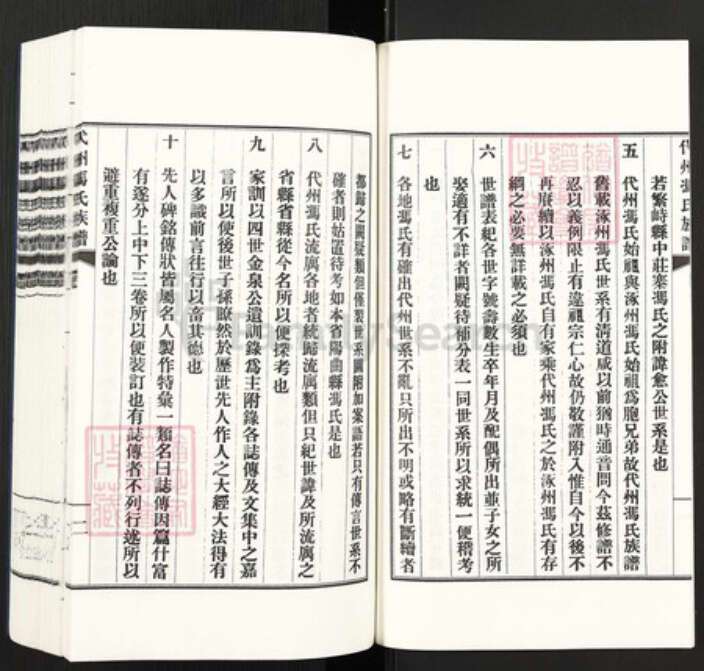 代州馮氏族譜
若繁峙縣中莊寨馮氏之附諱愈公世系是也
五 代州馮氏始祖與涿州馮氏始祖爲胞兄弟故代州馮氏族譜
舊載涿州馮氏世系有清道咸以前猶時通音問今茲修譜不
忍以義例限止有違祖宗仁心故仍敬謹附入惟自今以後不
再賡續以涿州馮氏自有家乘代州馮氏之於涿州馮氏有存
綱之必要無詳載之必須也
六 世譜表紀各世字號壽數生卒年月及配偶所出並子女之所
娶適有不詳者闕疑待補分表一同世系所以求統一便稽考
也
七 各地馮氏有確出代州世系不亂只所出不明或略有斷續者
都歸之闕疑類但僅製世系圖附加案語若只有傳言世系不
確者則姑置待考如本省陽曲縣馮氏是也
八 代州馮氏流寓各地者統歸流寓類但只紀世諱及所流寓之
省縣省縣從今名所以便探考也
九 家訓以四世金泉公遺訓錄爲主附錄各誌傳及文集中之嘉
言所以使後世子孫瞭然於歷世先人作人之大經大法得有
以多識前言往行以畜其德也
十 先人碑銘傳狀皆屬名人製作特彙一類名曰誌傳因篇什富
有遂分上中下三卷所以便裝訂也有誌傳者不列行述所以
避重複重公論也
代州馮氏族譜